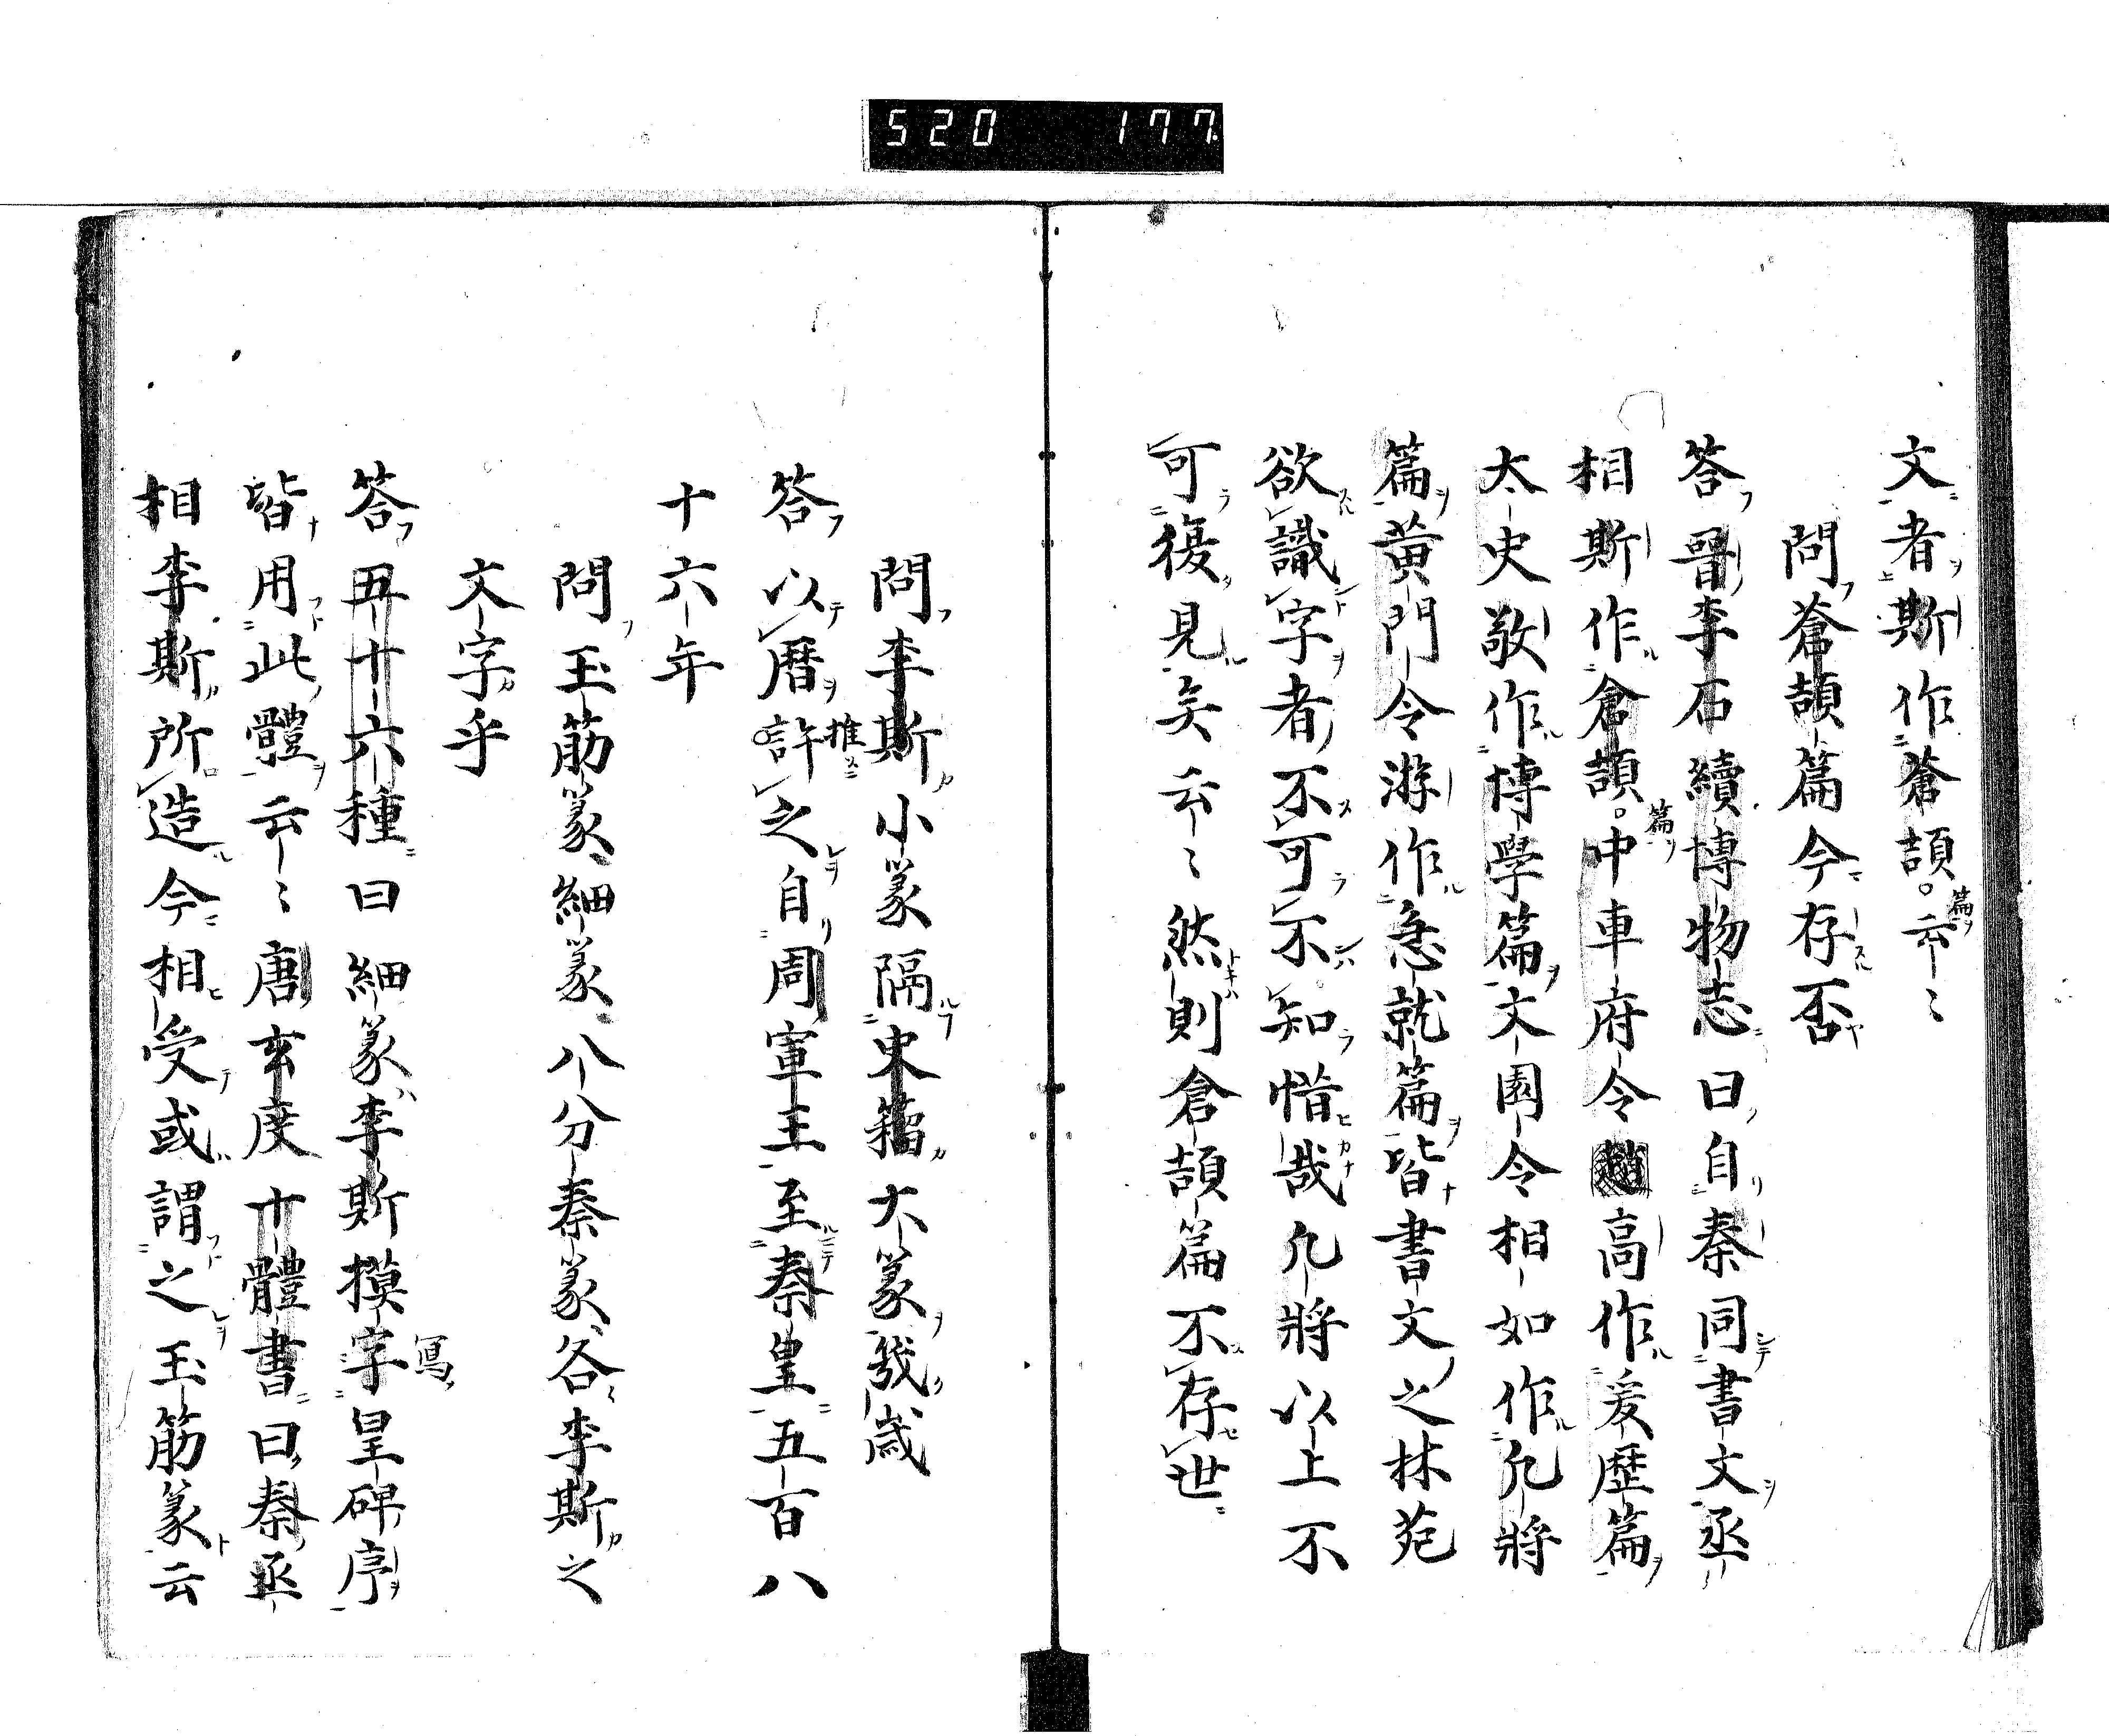 520 177
文者斯作蒼頡篇云々
問蒼頡篇今存否
答晋李石續博物志曰自秦同書文丞
相斯作倉頡篇中車府令趙高作爰歴篇
太史敬作博學篇文園令相如作凢將
篇黄門令游作急就篇皆書文之林苑
欲識字者不可不知惜哉凢將以上不
可復見矣云々然則倉頡篇不存世
問李斯小篆隔史籀大篆幾歳
答以暦推許之自周宣王至秦皇五百八
十六年
問玉筋篆細篆八分秦篆各李斯之
文字乎
答五十六種曰細篆李斯摸寫字皇碑序
皆用此體云々唐玄度十體書曰秦丞
相李斯所造今相受或謂之玉筋篆云